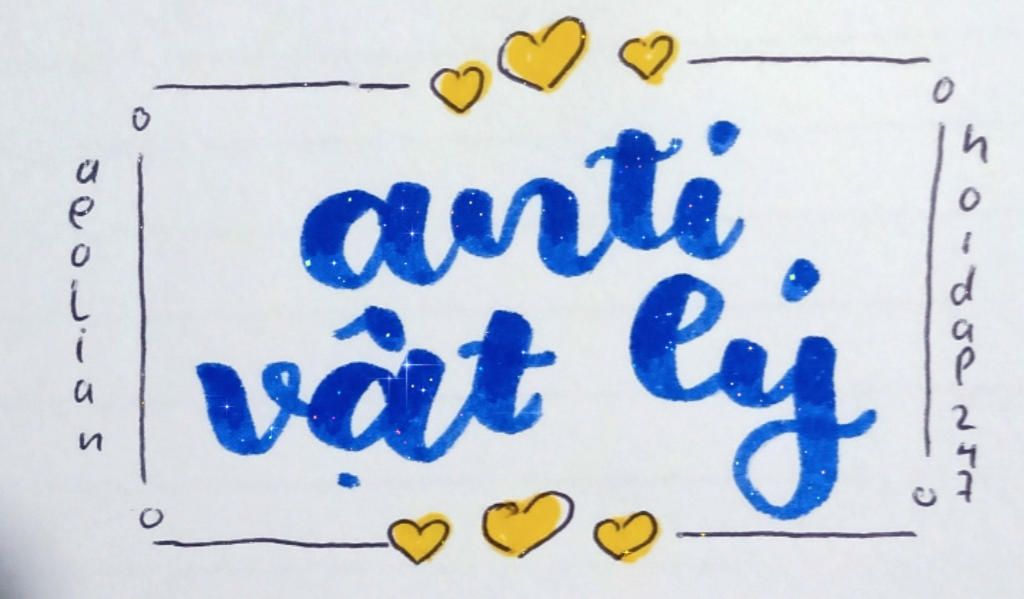 anti
vật lý
aeolian
hoidap247